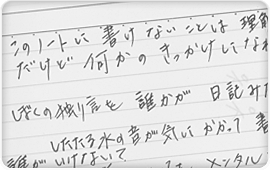 このノートに書けないことは理解
だけど何かのきっかけにな
ぼくの独言を誰かが日記み
したたる水の音が気にかかって 書
誰がいけないって
メンタル